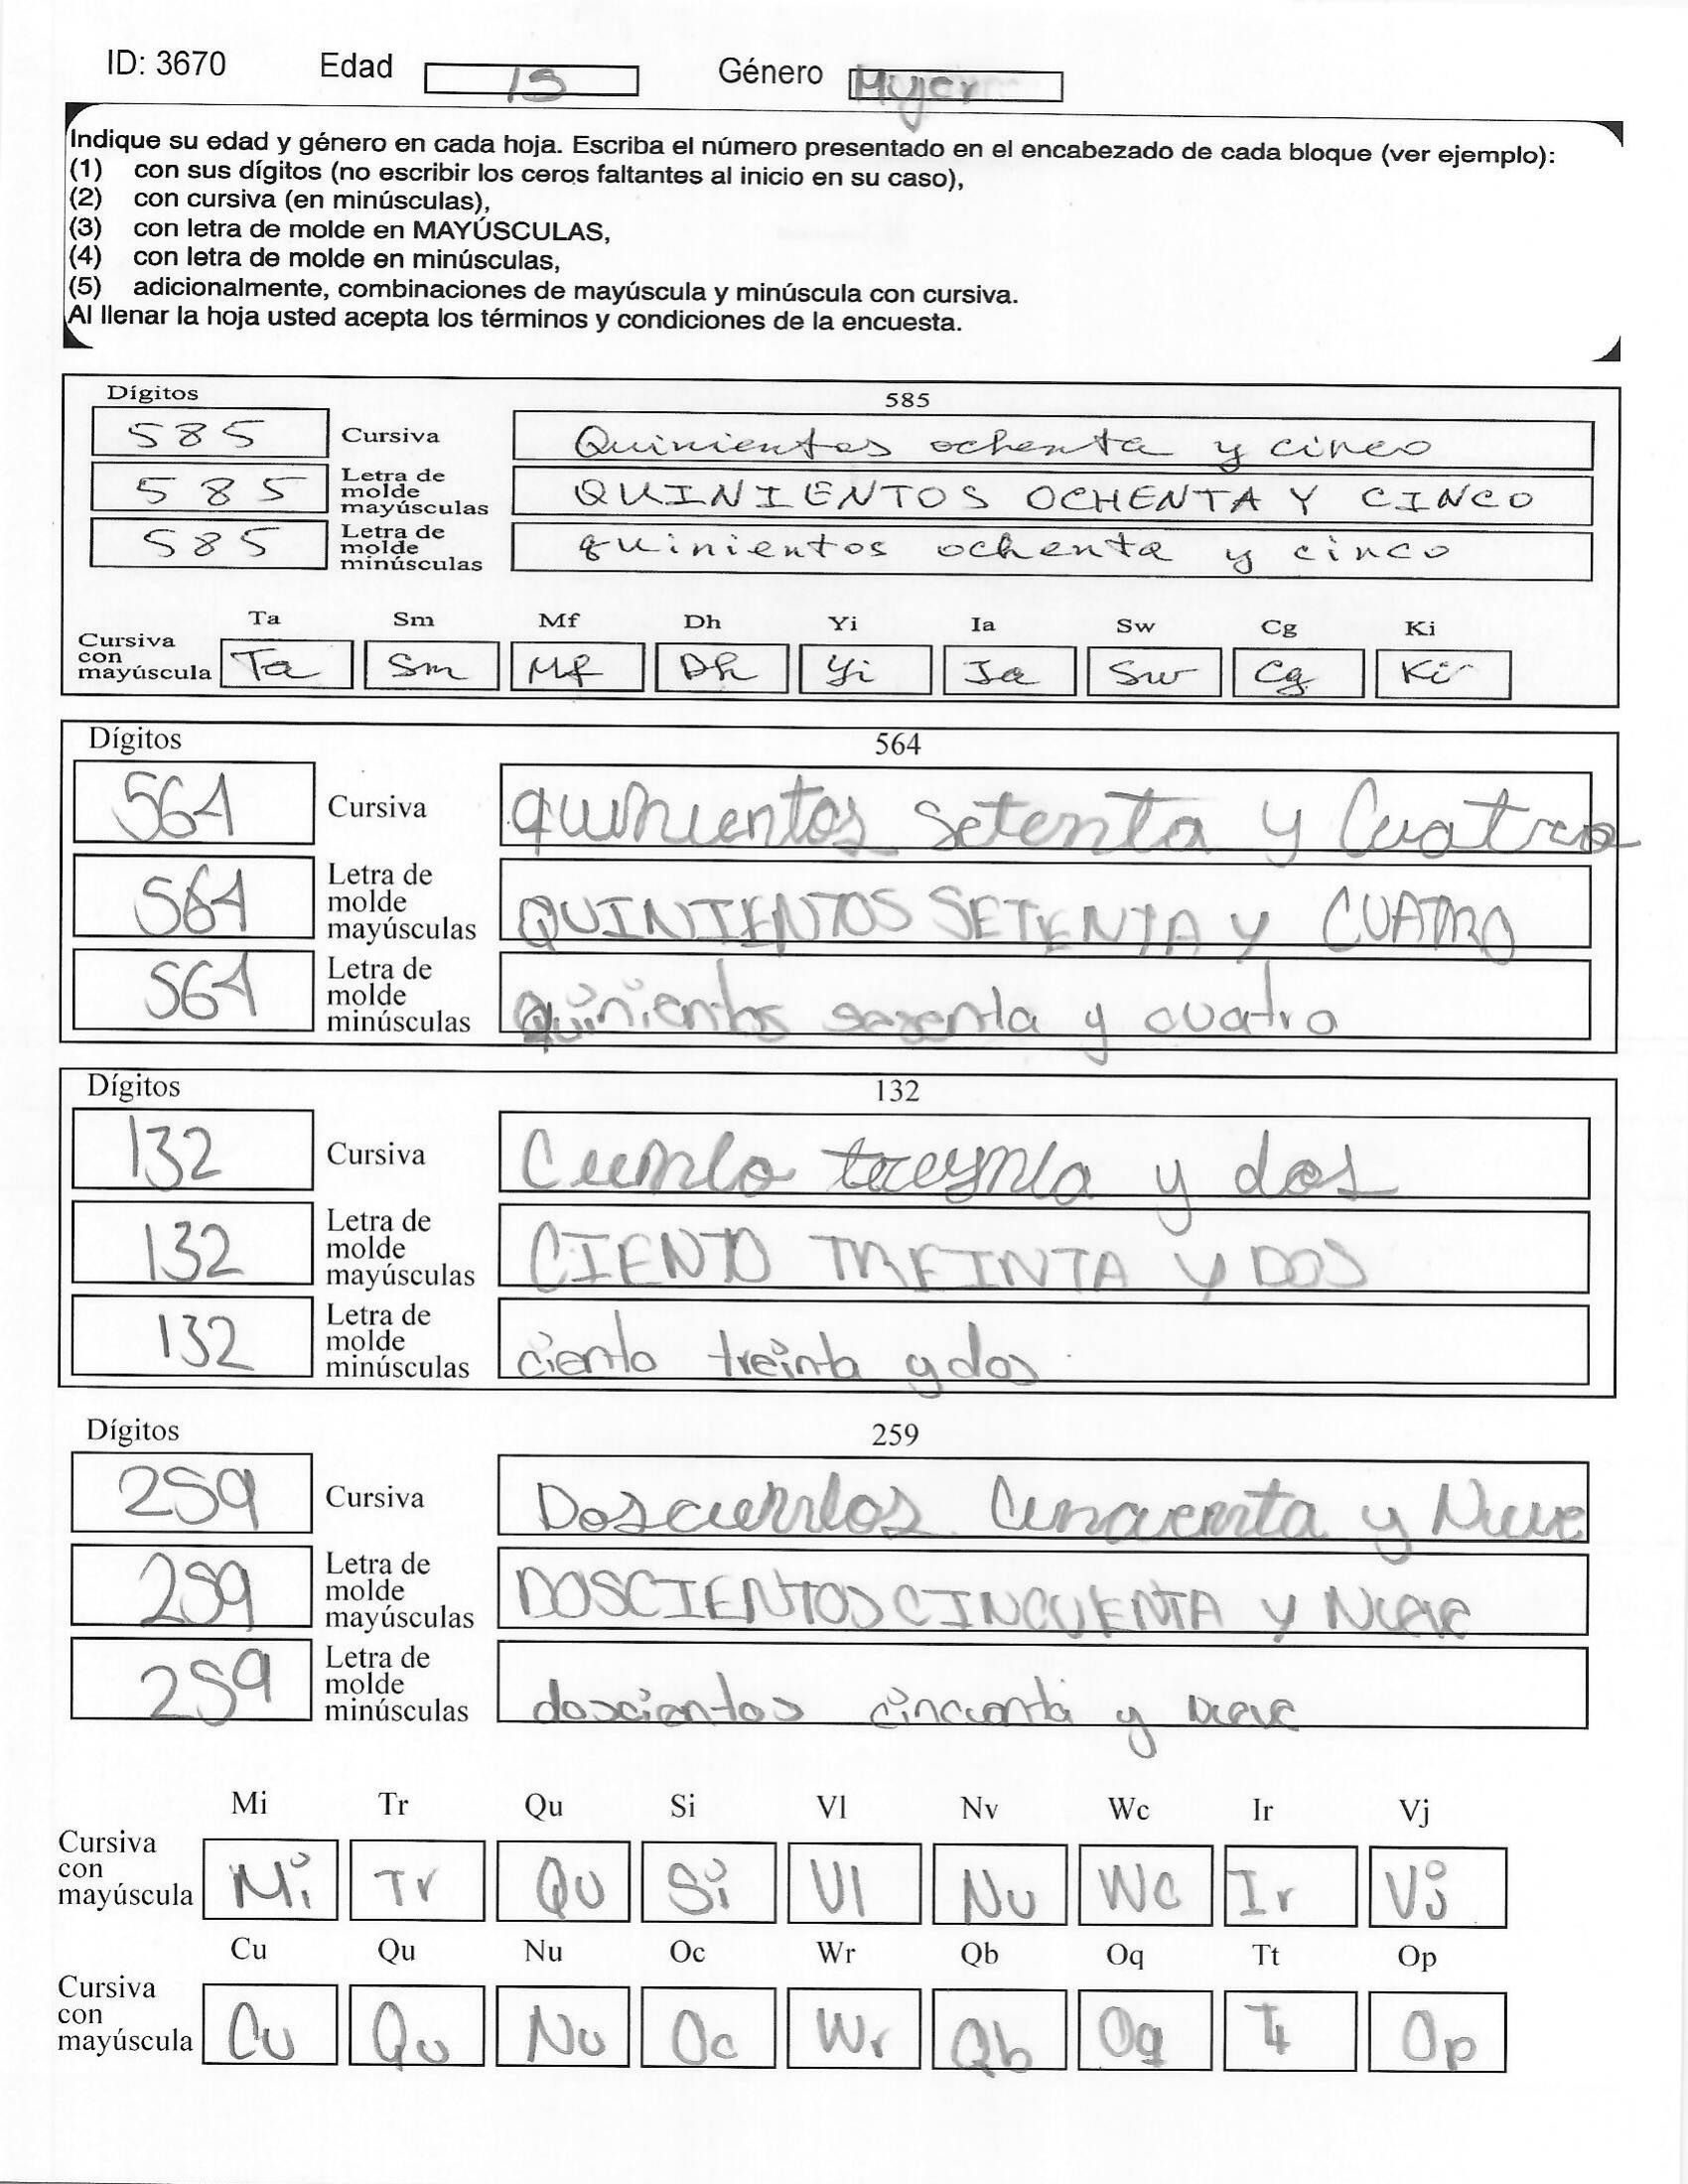 ID: 3670 Edad 13 Género Mujer
Indique su edad y género en cada hoja. Escriba el número presentado en el encabezado de cada bloque (ver ejemplo):
(1) con sus dígitos (no escribir los ceros faltantes al inicio en su caso),
(2) con cursiva (en minúsculas),
(3) con letra de molde en MAYÚSCULAS,
(4) con letra de molde en minúsculas,
(5) adicionalmente, combinaciones de mayúscula y minúscula con cursiva.
Al llenar la hoja usted acepta los términos y condiciones de la encuesta.
Dígitos 585
585 Cursiva Quinientos ochenta y cinco
585 Letra de molde mayúsculas QUINIENTOS OCHENTA Y CINCO
585 Letra de molde minúsculas quinientos ochenta y cinco
Ta Sm Mf Dh Yi Ia Sw Cg Ki
Cursiva con mayúscula Ta Sm Mf Dh Yi Ia Sw Cg Ki
Dígitos 564
564 Cursiva quinientos setenta y Cuatro
564 Letra de molde mayúsculas QUINIENTOS SETENTA Y CUATRO
564 Letra de molde minúsculas quinientos sesenta y cuatro
Dígitos 132
132 Cursiva y dos
132 Letra de molde mayúsculas CIENTO TREINTA Y DOS
132 Letra de molde minúsculas ciento treinta y dos
Dígitos 259
259 Cursiva Doscientos y Nueve
259 Letra de molde mayúsculas DOSCIENTOS CINCUENTA Y NUEVE
259 Letra de molde minúsculas doscientos y nueve
Mi Tr Qu Si Vl Nv Wc Ir Vj
Cursiva con mayúscula Mi Tr Qu Si Vl Nu Wc Ir Vj
Cu Qu Nu Oc Wr Qb Oq Tt Op
Cursiva con mayúscula Cu Qu Nu Oc Wr Qb Oq Tt Op